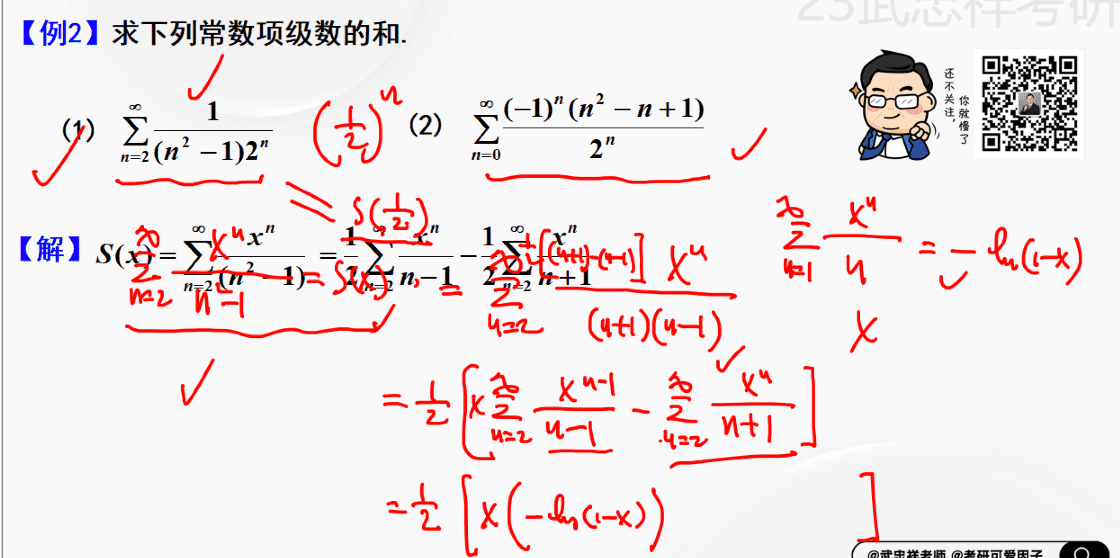 23武忠祥考研
【例2】求下列常数项级数的和.
还不关注,
你就慢了
(1) $\sum_{n=2}^{\infty}\frac{1}{(n^2-1)2^n}$ $\left(\frac{1}{2}\right)^n$ (2) $\sum_{n=0}^{\infty}\frac{(-1)^n(n^2-n+1)}{2^n}$
= $S(\frac{1}{2})$
【解】 $S(x)=\sum_{n=2}^{\infty}\frac{x^n}{(n^2-1)}=\frac{1}{2}\sum_{n=2}^{\infty}\frac{x^n}{n-1}-\frac{1}{2}\sum_{n=2}^{\infty}\frac{x^n}{n+1}$
$\sum_{n=2}^{\infty}\frac{x^n}{n^2-1}=S(x)=\sum_{n=2}^{\infty}\frac{\frac{1}{2}[(n+1)-(n-1)]x^n}{(n+1)(n-1)}$
$\sum_{n=1}^{\infty}\frac{x^n}{n}=-\ln(1-x)$
x
$=\frac{1}{2}\left[x\sum_{n=2}^{\infty}\frac{x^{n-1}}{n-1}-\sum_{n=2}^{\infty}\frac{x^n}{n+1}\right]$
$=\frac{1}{2}\left[x(-\ln(1-x))\right]$
@武忠祥老师 @考研可爱因子